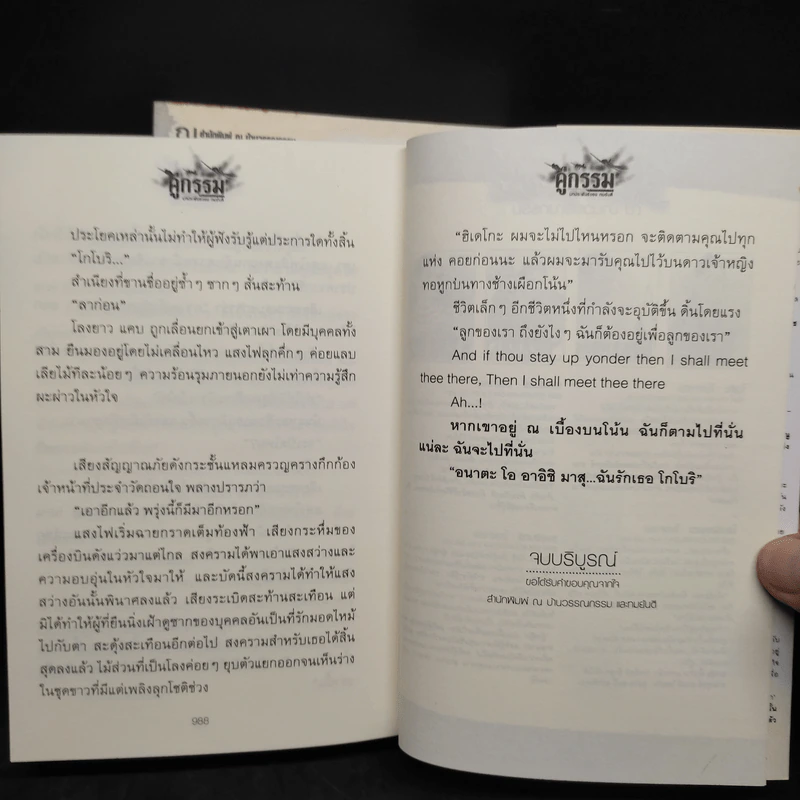 สำนักพิมพ์ ณ บ้านวรรณกรรม
คู่กรรม
ประโยคเหล่านั้นไม่ทำให้ผู้ฟังรับรู้แต่ประการใดทั้งสิ้น
“โกโบริ...”
สำเนียงที่ขานชื่ออยู่ซ้ำๆ ซากๆ สั่นสะท้าน
“ลาก่อน”
โลงยาว แคบ ถูกเลื่อนยกเข้าสู่เตาเผา โดยมีบุคคลทั้ง
สาม ยืนมองอยู่โดยไม่เคลื่อนไหว แสงไฟลุกคึกๆ ค่อยแลบ
เลียไม้ทีละน้อยๆ ความร้อนรุมภายนอกยังไม่เท่าความรู้สึก
ผะผ่าวในหัวใจ
เสียงสัญญาณภัยดังกระชั้นแหลมครวญครางกึกก้อง
เจ้าหน้าที่ประจำวัดถอนใจ พลางปรารภว่า
“เอาอีกแล้ว พรุ่งนี้ก็มีมาอีกหรอก”
แสงไฟเริ่มฉายกราดเต็มท้องฟ้า เสียงกระหึ่มของ
เครื่องบินดังแว่วมาแต่ไกล สงครามได้พาเอาแสงสว่างและ
ความอบอุ่นในหัวใจมาให้ และบัดนี้สงครามได้ทำให้แสง
สว่างอันนั้นพินาศลงแล้ว เสียงระเบิดสะท้านสะเทือน แต่
มิได้ทำให้ผู้ที่ยืนนิ่งเฝ้าดูซากของบุคคลอันเป็นที่รักมอดไหม้
ไปกับตา สะดุ้งสะเทือนอีกต่อไป สงครามสำหรับเธอได้สิ้น
สุดลงแล้ว ไม้ส่วนที่เป็นโลงค่อยๆ ยุบตัวแยกออกจนเห็นร่าง
ในชุดขาวที่มีแต่เพลิงลุกโชติช่วง
988
คู่กรรม
“ฮิเดโกะ ผมจะไม่ไปไหนหรอก จะติดตามคุณไปทุก
แห่ง คอยก่อนนะ แล้วผมจะมารับคุณไปไว้บนดาวเจ้าหญิง
ทอหูกบนทางช้างเผือกโน้น”
ชีวิตเล็กๆ อีกชีวิตหนึ่งที่กำลังจะอุบัติขึ้น ดิ้นโดยแรง
“ลูกของเรา ถึงยังไงๆ ฉันก็ต้องอยู่เพื่อลูกของเรา”
And if thou stay up yonder then I shall meet
thee there, Then I shall meet thee there
Ah...!
หากเขาอยู่ ณ เบื้องบนโน้น ฉันก็ตามไปที่นั่น
แน่ละ ฉันจะไปที่นั่น
“อนาตะ โอ อาอิชิ มาสุ...ฉันรักเธอ โกโบริ”
จบบริบูรณ์
ขอได้รับคำขอบคุณจากใจ
สำนักพิมพ์ ณ บ้านวรรณกรรม และทมยันตี